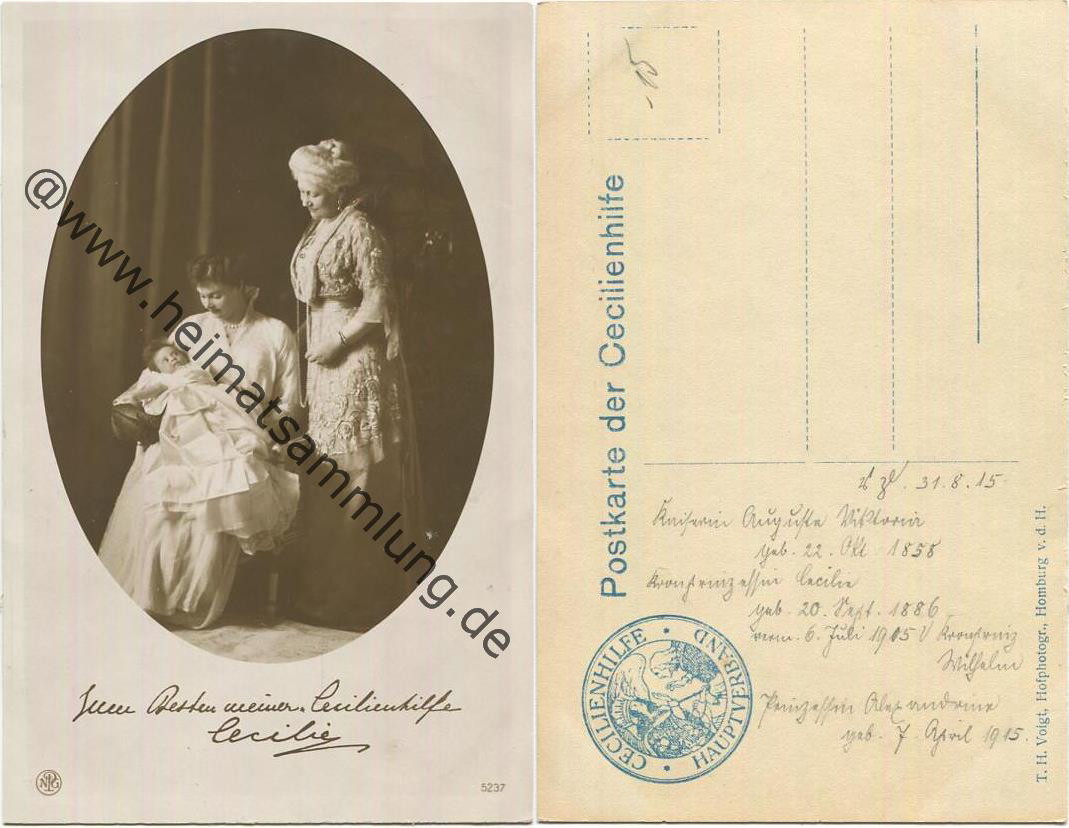 @www.heimatsammlung.de
Zum Besten meiner Cecilienhilfe
Cecilie
NPG
5237
15
Postkarte der Cecilienhilfe
31.8.15.
Kaiserin Auguste Viktoria
geb. 22. Okt. 1858
Kronprinzessin Cecilie
geb. 20. Sept. 1886
verm. 6. Juli 1915 Kronprinz
Wilhelm
Prinzessin Alexandrine
geb. 7. April 1915.
CECILIENHILFE • HAUPTVERBAND •
T. H. Voigt, Hofphotogr., Homburg v. d. H.